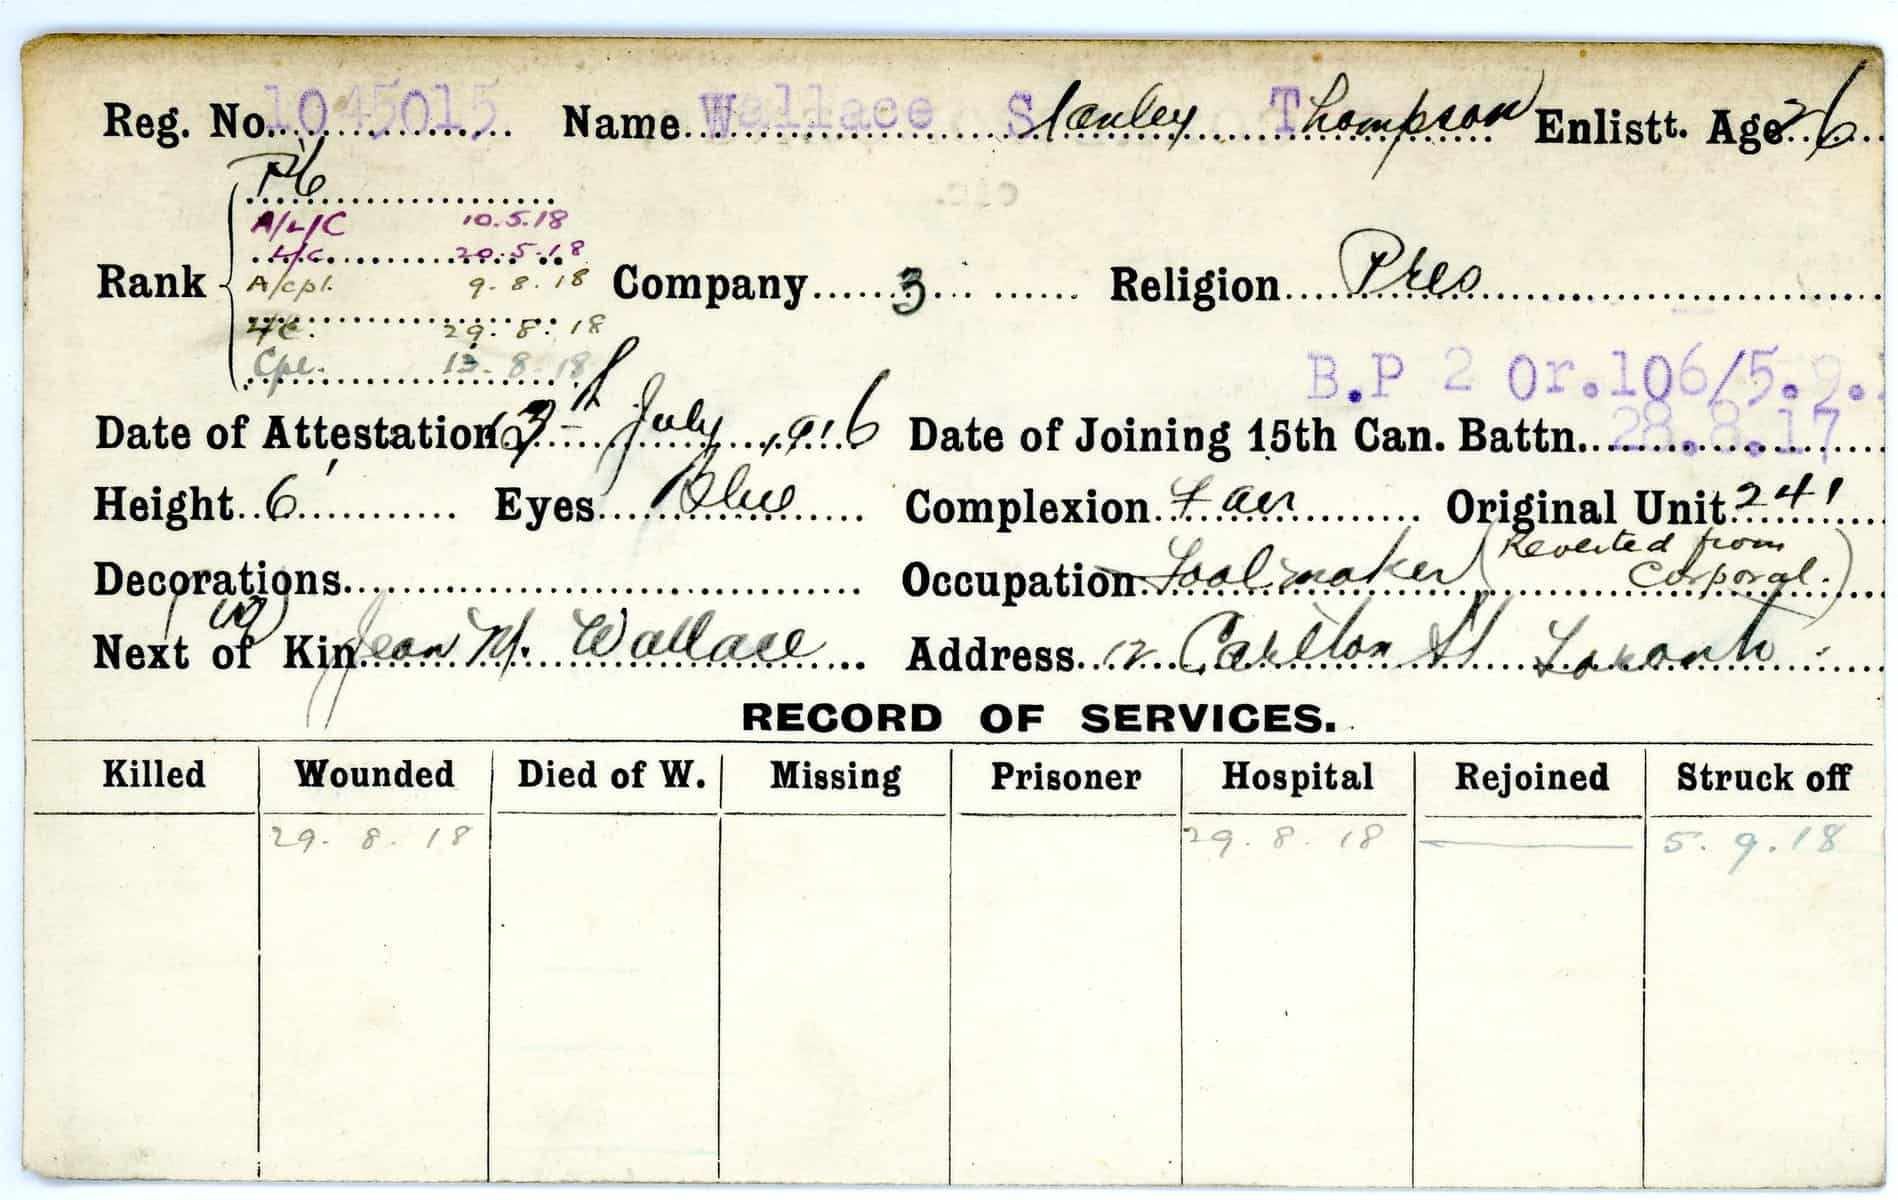 Reg. No. 1045015 Name Wallace Stanley Thompson Enlistt. Age 26
Pte
A/L/C 10.5.18
L/C. 20.5.18
Rank A/Cpl. 9.8.18 Company 3 Religion Pres
L/C. 29.8.18
Cpl. 13.8.18
B.P 2 Or.106/5.9.
Date of Attestation July 1916 Date of Joining 15th Can. Battn. 28.8.17
Height 6' Eyes Blue Complexion Fair Original Unit 241
Decorations Occupation Toolmaker (Reverted from Corporal.)
Next of Kin Jean M. Wallace Address 12 Carlton St Toronto
RECORD OF SERVICES.
Killed Wounded Died of W. Missing Prisoner Hospital Rejoined Struck off
29.8.18 29.8.18 5.9.18